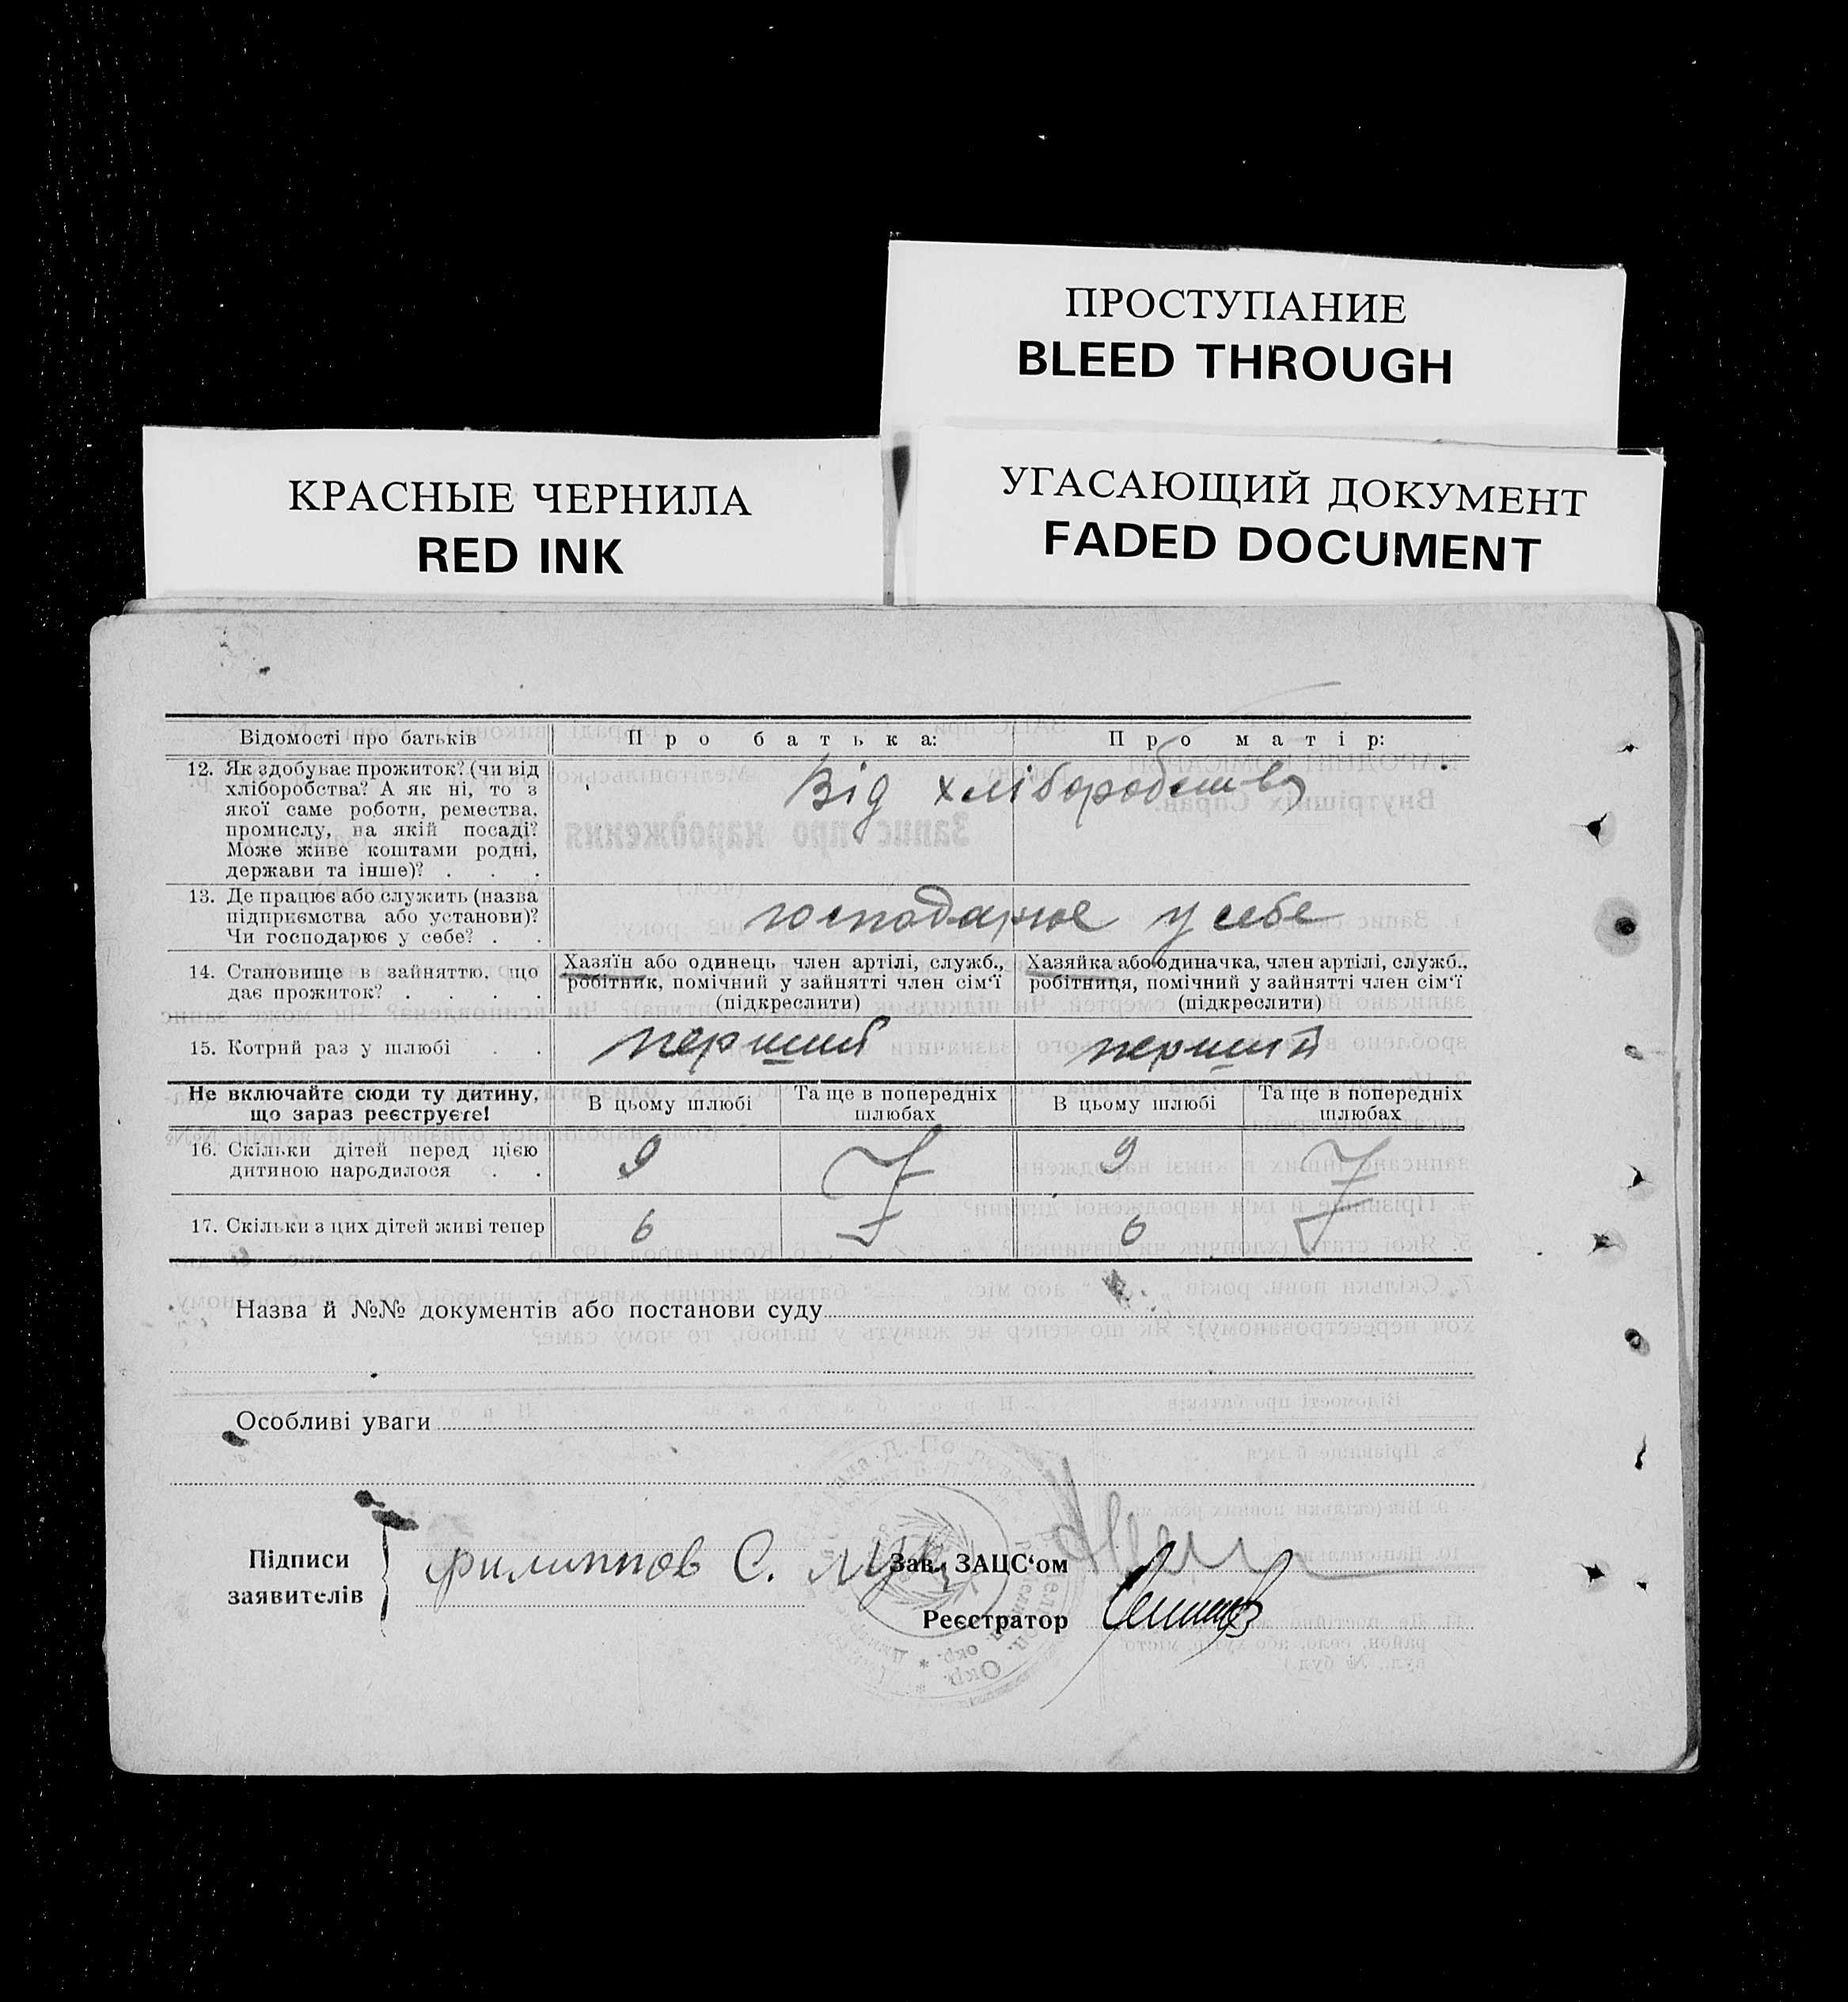 ПРОСТУПАНИЕ
BLEED THROUGH
КРАСНЫЕ ЧЕРНИЛА
RED INK
УГАСАЮЩИЙ ДОКУМЕНТ
FADED DOCUMENT
Відомості про батьків
Про батька:
Про матір:
12. Як здобуває прожиток? (чи від
хліборобства? А як ні, то з
якої саме роботи, ремества,
промислу, на якій посаді?
Може живе коштами родні,
держави та інше)? . . .
Від хліборобства
13. Де працює або служить (назва
підприємства або установи)?
Чи господарює у себе? . .
господарює у себе
14. Становище в зайняттю, що
дає прожиток? . . . .
Хазяїн або одинець, член артілі, служб.,
робітник, помічний у зайнятті член сім'ї
(підкреслити)
Хазяйка або одиначка, член артілі, служб.,
робітниця, помічний у зайнятті член сім'ї
(підкреслити)
15. Котрий раз у шлюбі . .
перший
перший
Не включайте сюди ту дитину,
що зараз реєструєте!
В цьому шлюбі
Та ще в попередніх
шлюбах
В цьому шлюбі
Та ще в попередніх
шлюбах
16. Скільки дітей перед цією
дитиною народилося . .
9
9
17. Скільки з цих дітей живі тепер
6
6
Назва й №№ документів або постанови суду
Особливі уваги
Підписи
заявителів
Филиппов С.
Зав. ЗАЦС'ом
Реєстратор